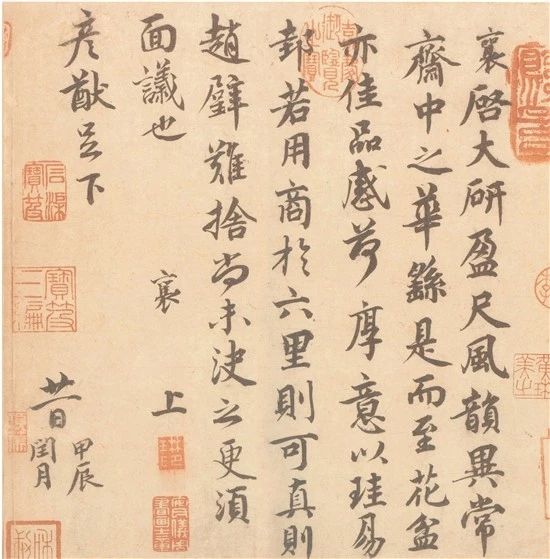 襄啓大研盈尺風韻異常
齋中之華繇是而至花盆
亦佳品感荷厚意以珪易
邽若用商於六里則可真則
趙璧難捨尚未決之更須
面議也 襄 上
彥猷足下
廿一日 甲辰
閏月